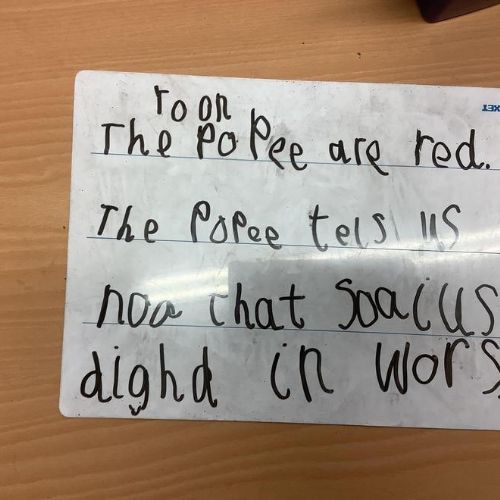 roon
The PoPee are red.
The Popee tels us
noa that soaius
dighd in wors